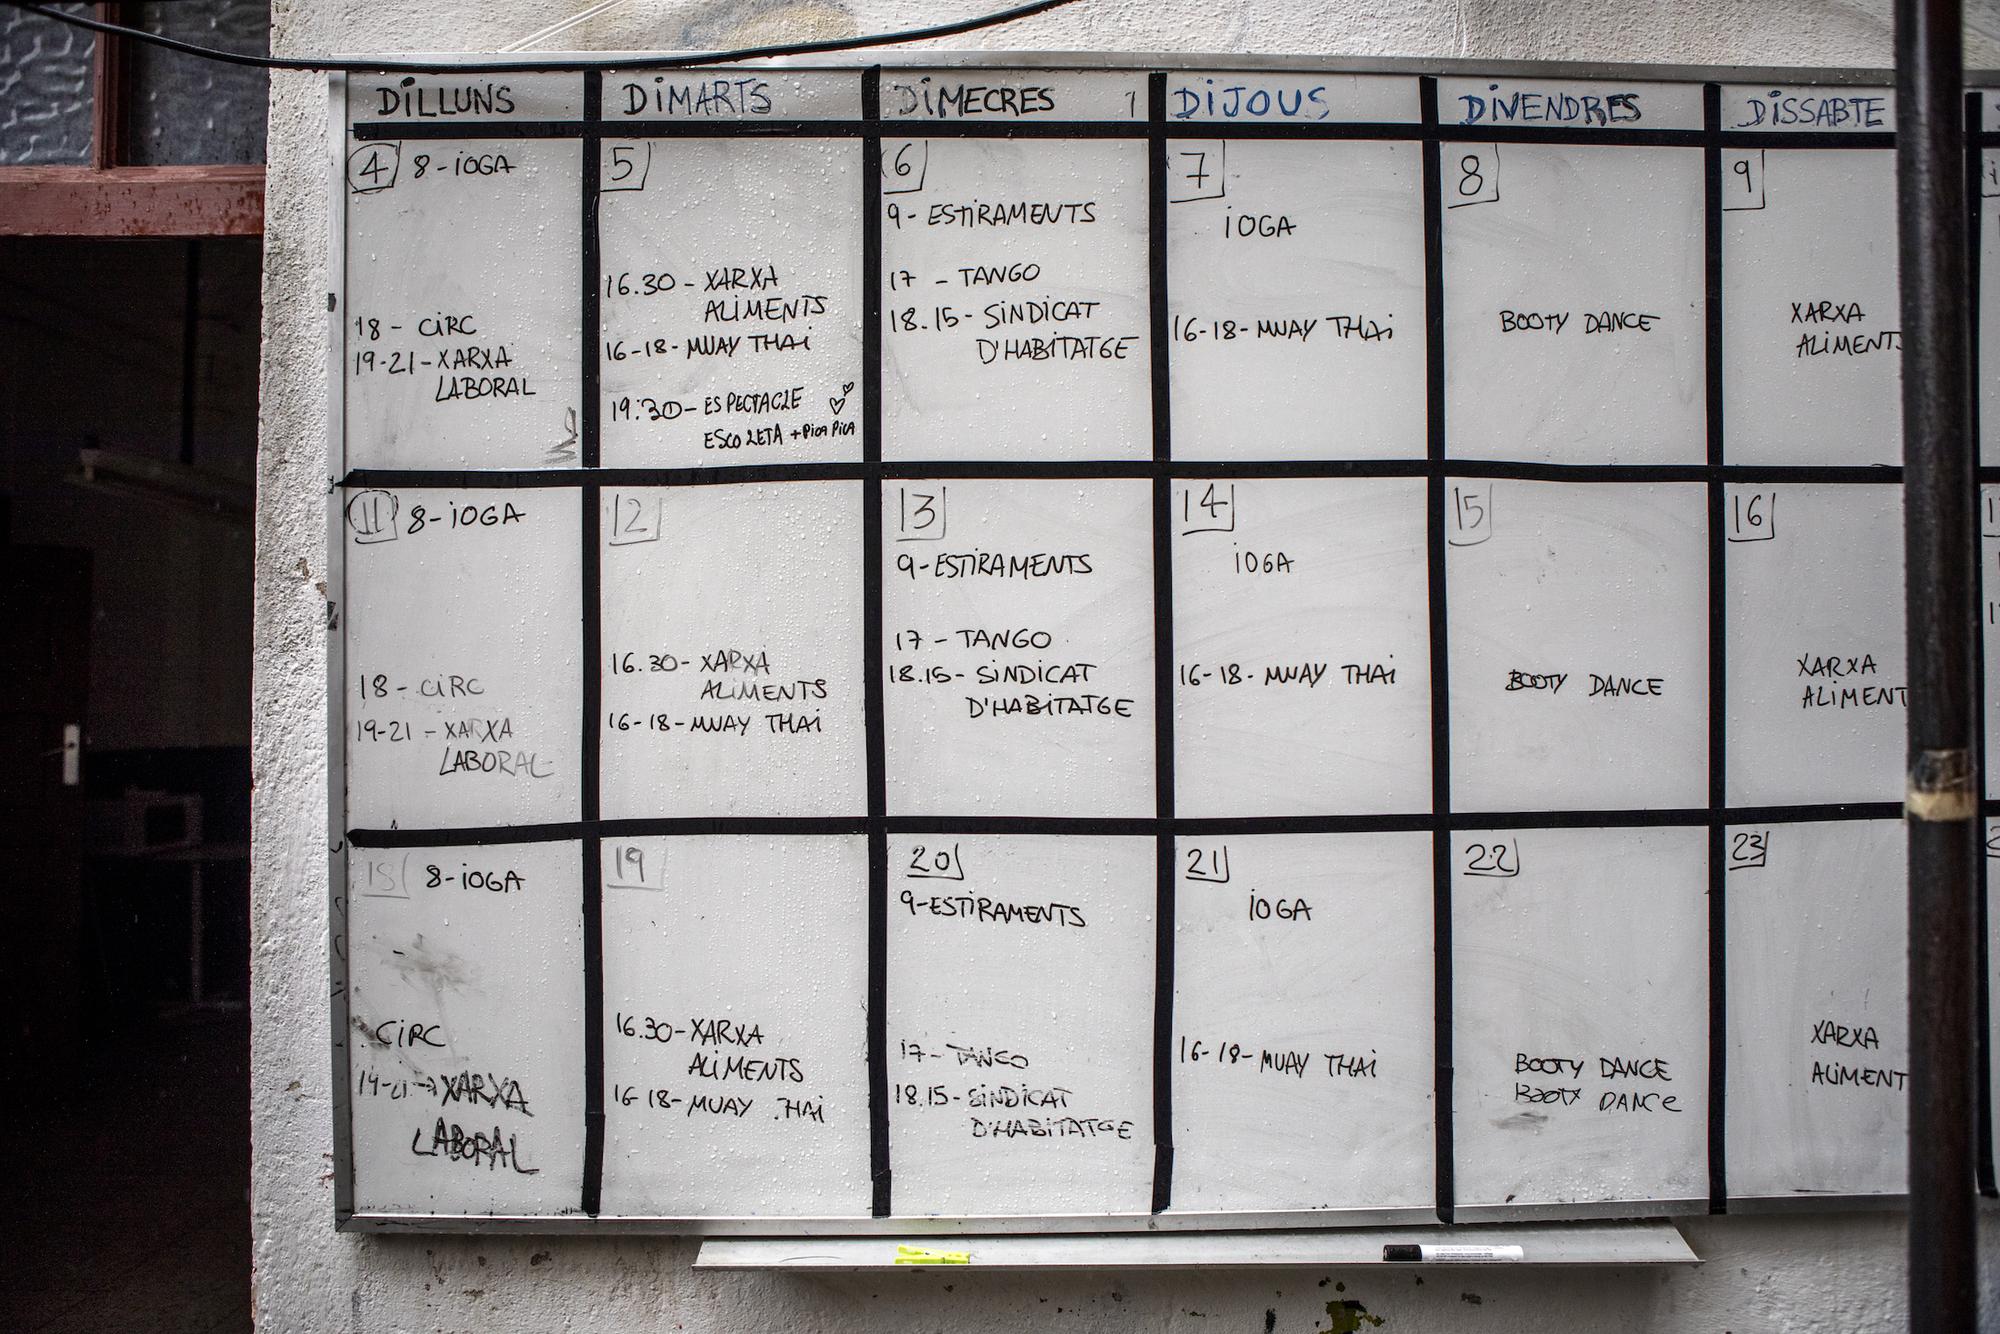 DILLUNS
DIMARTS
DIMECRES 1
DIJOUS
DIVENDRES
DISSABTE
4 8-IOGA
18 - CIRC
19-21-XARXA
LABORAL
5
16.30 - XARXA
ALIMENTS
16-18-MUAY THAI
19:30-ESPECTACLE
ESCOLETA + PICA PICA
6
9- ESTIRAMENTS
17 - TANGO
18.15- SINDICAT
D'HABITATGE
7
IOGA
16-18- MUAY THAI
8
BOOTY DANCE
9
XARXA
ALIMENTS
11 8-IOGA
18 - CIRC
19-21 - XARXA
LABORAL
12
16.30- XARXA
ALIMENTS
16-18-MUAY THAI
13
9-ESTIRAMENTS
17 - TANGO
18.15- SINDICAT
D'HABITATGE
14
IOGA
16-18- MUAY THAI
15
BOOTY DANCE
16
XARXA
ALIMENT
18 8-IOGA
CIRC
19-21→XARXA
LABORAL
19
16.30-XARXA
ALIMENTS
16-18-MUAY HAI
20
9-ESTIRAMENTS
17-TANGO
18.15-SINDICAT
D'HABITATGE
21
IOGA
16-18-MUAY THAI
22
BOOTY DANCE
BOOTY DANCE
23
XARXA
ALIMENT